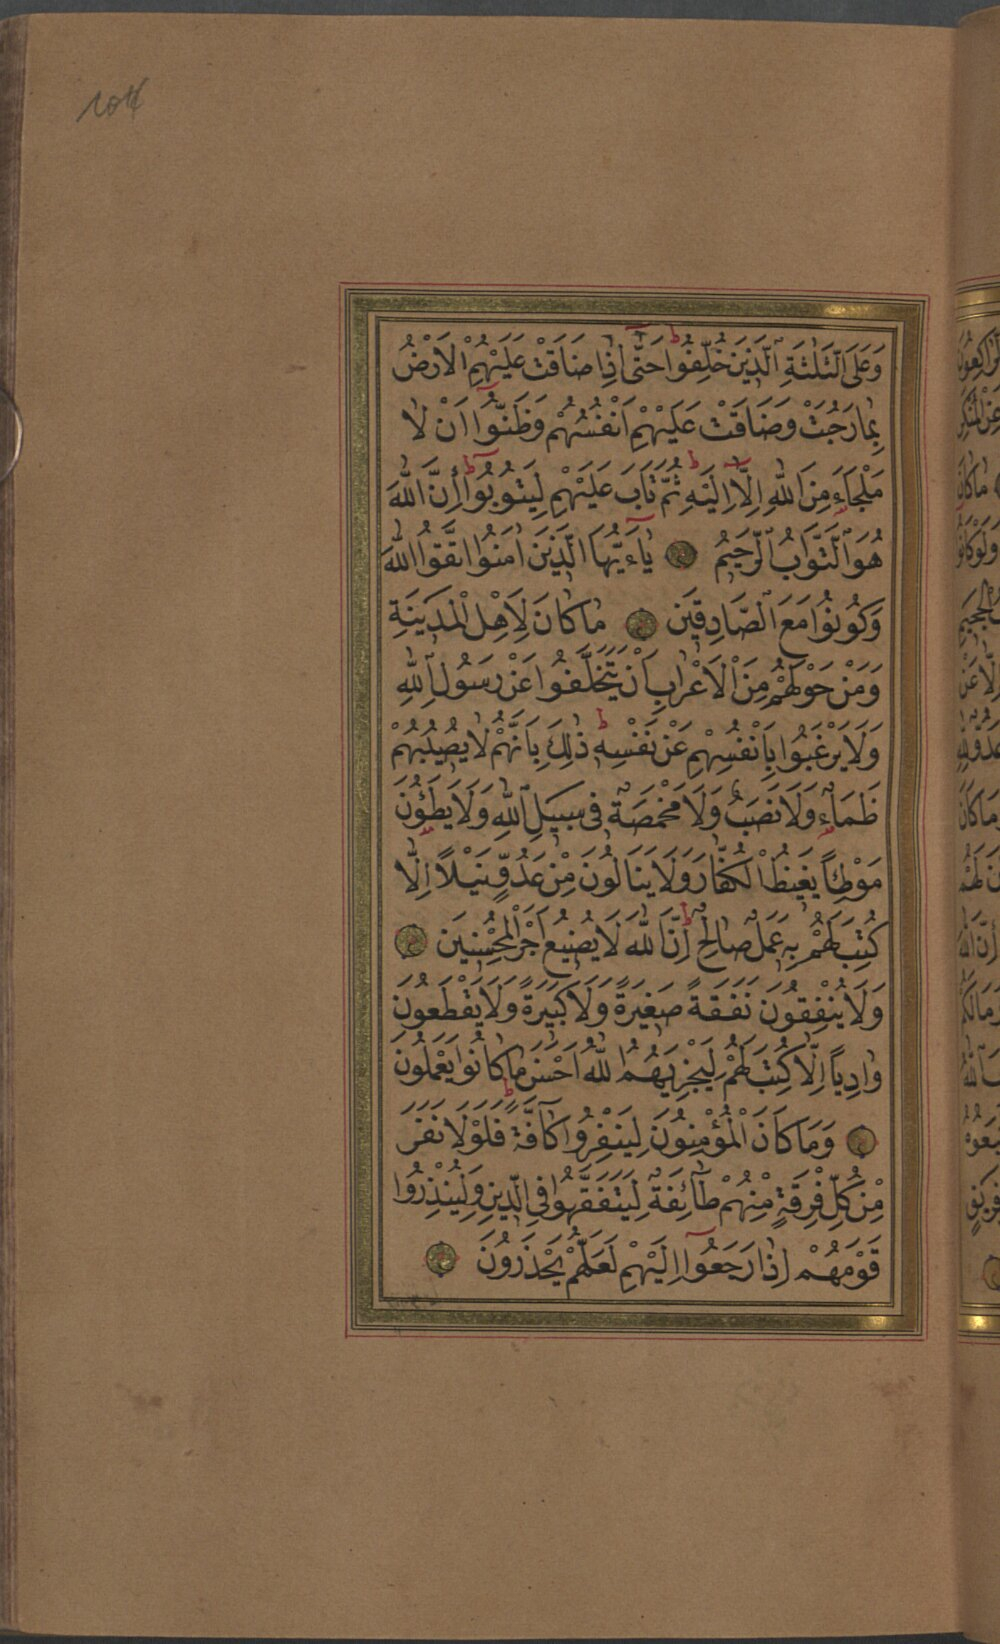 104
وَعَلَى الثَّلٰثَةِ الَّذِينَ خُلِّفُوا حَتّٰى اِذَا ضَاقَتْ عَلَيْهِمُ الْاَرْضُ
بِمَا رَحُبَتْ وَضَاقَتْ عَلَيْهِمْ اَنْفُسُهُمْ وَظَنُّوا اَنْ لَا
مَلْجَاَءَ مِنَ اللّٰهِ اِلَّا اِلَيْهِ ثُمَّ تَابَ عَلَيْهِمْ لِيَتُوبُوا اِنَّ اللّٰهَ
هُوَ التَّوَّابُ الرَّحِيمُ يَاءَيُّهَا الَّذِينَ اٰمَنُوا اتَّقُوا اللّٰهَ
وَكُونُوا مَعَ الصَّادِقِينَ مَا كَانَ لِاَهْلِ الْمَدِينَةِ
وَمَنْ حَوْلَهُمْ مِنَ الْاَعْرَابِ اَنْ يَتَخَلَّفُوا عَنْ رَسُولِ اللّٰهِ
وَلَا يَرْغَبُوا بِاَنْفُسِهِمْ عَنْ نَفْسِهِ ذٰلِكَ بِاَنَّهُمْ لَا يُصِيبُهُمْ
ظَمَاءٌ وَلَا نَصَبٌ وَلَا مَخْمَصَةٌ فِى سَبِيلِ اللّٰهِ وَلَا يَطَؤُنَ
مَوْطِئًا يَغِيظُ الْكُفَّارَ وَلَا يَنَالُونَ مِنْ عَدُوٍّ نَيْلًا اِلَّا
كُتِبَ لَهُمْ بِهِ عَمَلٌ صَالِحٌ اِنَّ اللّٰهَ لَا يُضِيعُ اَجْرَ الْمُحْسِنِينَ
وَلَا يُنْفِقُونَ نَفَقَةً صَغِيرَةً وَلَا كَبِيرَةً وَلَا يَقْطَعُونَ
وَادِيًا اِلَّا كُتِبَ لَهُمْ لِيَجْزِيَهُمُ اللّٰهُ اَحْسَنَ مَا كَانُوا يَعْمَلُونَ
وَمَا كَانَ الْمُؤْمِنُونَ لِيَنْفِرُوا كَآفَّةً فَلَوْلَا نَفَرَ
مِنْ كُلِّ فِرْقَةٍ مِنْهُمْ طَآئِفَةٌ لِيَتَفَقَّهُوا فِى الدِّينِ وَلِيُنْذِرُوا
قَوْمَهُمْ اِذَا رَجَعُوا اِلَيْهِمْ لَعَلَّهُمْ يَحْذَرُونَ